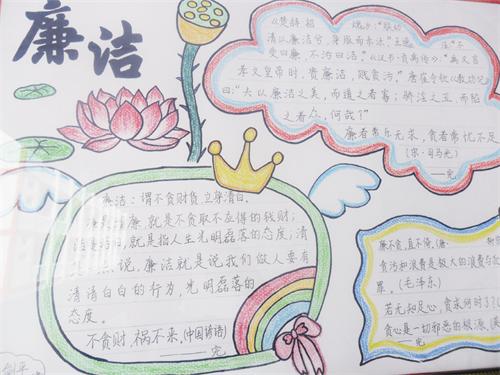 廉洁
《楚辞·招魂》:"朕幼
清以廉洁兮,身服而未沫"王逸注:"不
受曰廉,不污曰洁。"《汉书·贡禹传》:"禹又言
孝文皇帝时,贵廉洁,贱贪污。"唐 《
曰:"大以廉洁之美,而道之者寡;骄淫之丑,而陷
之者众,何哉?"
廉者常乐无求,贪者常忧不足
(宋·司马光)
——完
廉洁:谓不贪财货,立身清白。
廉就是不贪取不应得的钱财;
洁就是指人生光明磊落的态度;清
说,廉洁就是说我们做人要有
清清白白的行为,光明磊落的
态度。
不贪财,祸不来。(中国谚语)
——完
廉不贪,直不倚,
贪污和浪费是极大的
罪。(毛泽东)
若无知足心,贪求何时了
贪心是一切邪恶的根源。
——完